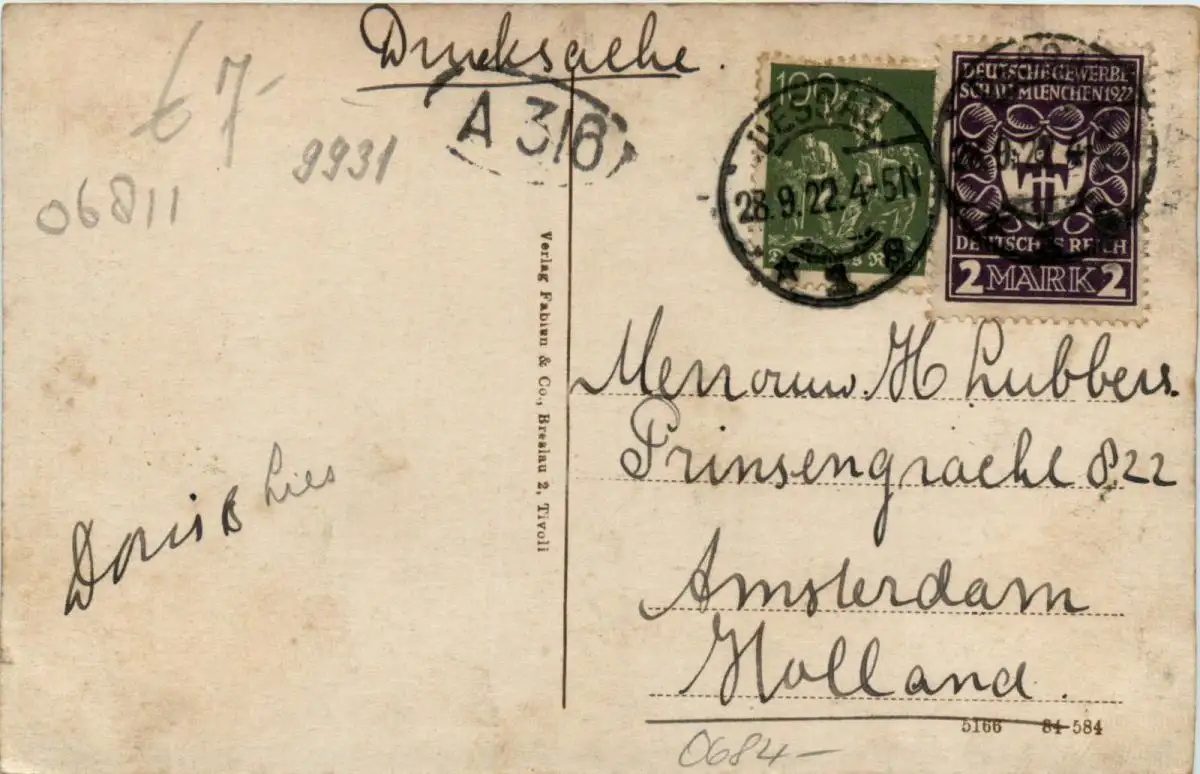 Drucksache.
€ 7-
A 316
9931
06811
100
DESSAU
28.9.22.4-5N
* 1 *
DEUTSCHE GEWERBE
SCHAU MUENCHEN 1922
DEUTSCHES REICH
2 MARK 2
Verlag Fabian & Co., Breslau 2, Tivoli
Mevrouw. H Lubbers.
Prinsengracht 822
Amsterdam
Holland.
Doris B Lies
5166 84-584
0684-